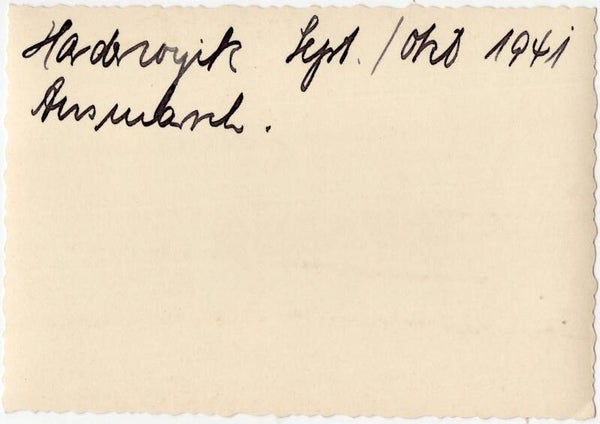 Harderwyik Sept. / Okt 1941
Ausmarsch.